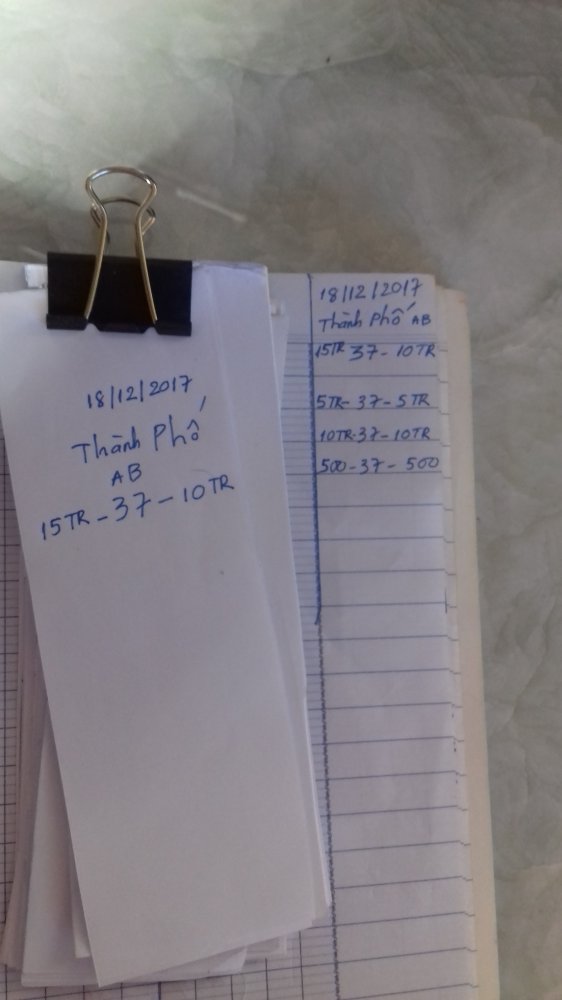 18/12/2017
Thành Phố
AB
15TR - 37 - 10TR
18/12/2017
Thành Phố AB
15TR 37 - 10TR
5TR - 37 - 5TR
10TR - 37 - 10TR
500 - 37 - 500